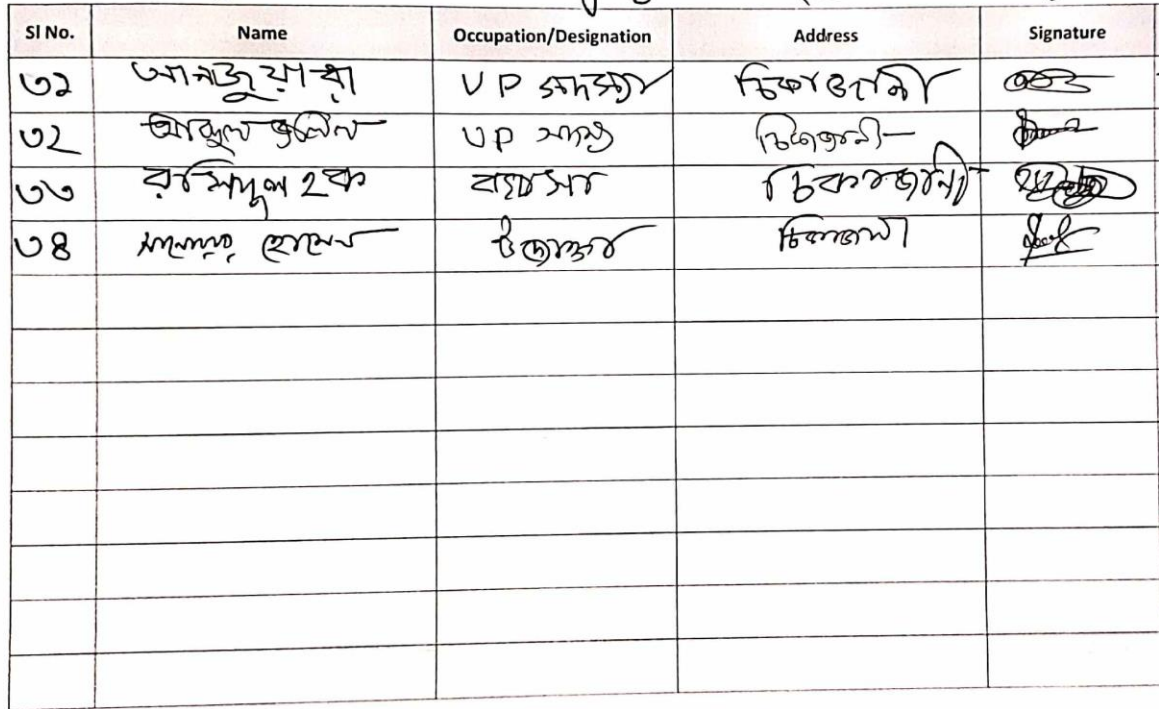 Sl No. Name Occupation/Designation Address Signature
৩১ আনজুয়ারা UP সদস্যা চিকাজানী
৩২ আব্দুল জলিল UP সদস্য চিকাজানী
৩৩ রসিদুল হক ব্যবসা চিকাজানী
৩৪ হোসেন